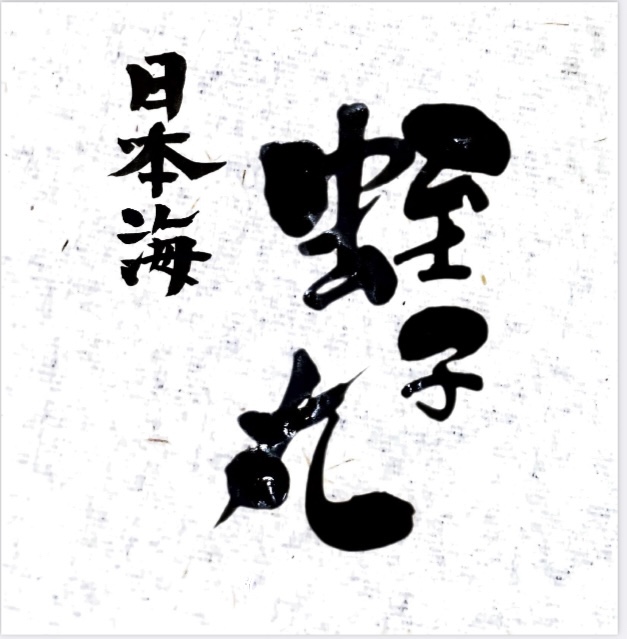 蛭子丸
日本海